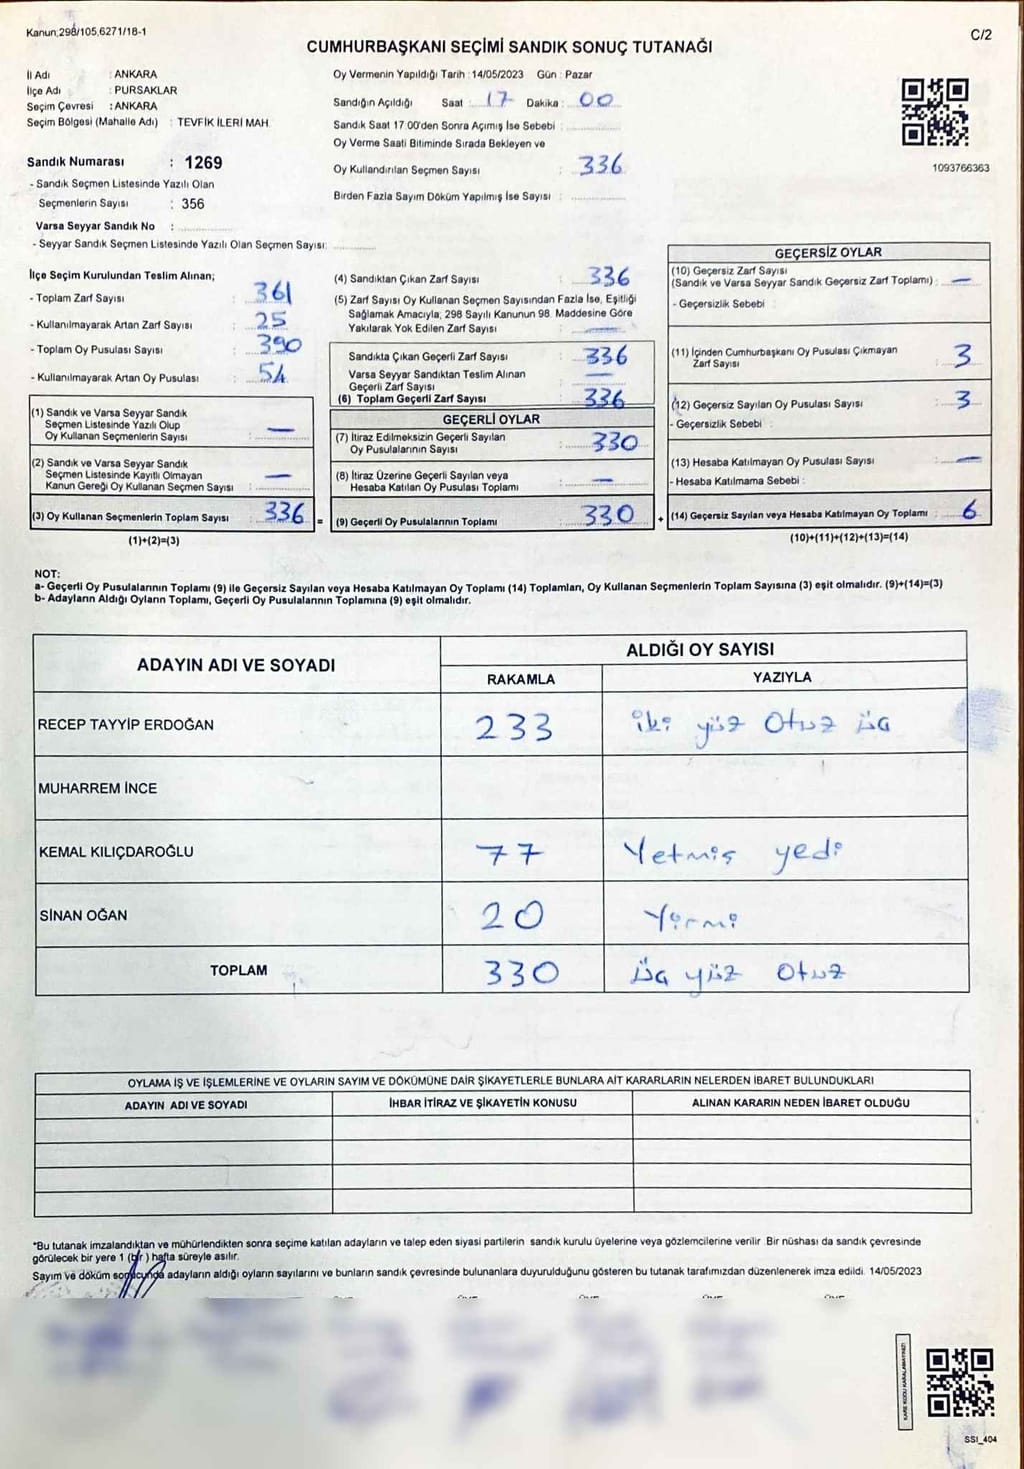 Kanun;298/105,6271/18-1
C/2
CUMHURBAŞKANI SEÇİMİ SANDIK SONUÇ TUTANAĞI
İl Adı : ANKARA
İlçe Adı : PURSAKLAR
Seçim Çevresi : ANKARA
Seçim Bölgesi (Mahalle Adı) : TEVFİK İLERİ MAH.
Oy Vermenin Yapıldığı Tarih : 14/05/2023 Gün : Pazar
Sandığın Açıldığı Saat : 17 Dakika : 00
Sandık Saat 17.00'den Sonra Açımış İse Sebebi :
Oy Verme Saati Bitiminde Sırada Bekleyen ve
Oy Kullandırılan Seçmen Sayısı : 336
Birden Fazla Sayım Döküm Yapılmış İse Sayısı :
1093766363
Sandık Numarası : 1269
- Sandık Seçmen Listesinde Yazılı Olan
Seçmenlerin Sayısı : 356
Varsa Seyyar Sandık No :
- Seyyar Sandık Seçmen Listesinde Yazılı Olan Seçmen Sayısı:
İlçe Seçim Kurulundan Teslim Alınan;
- Toplam Zarf Sayısı : 361
- Kullanılmayarak Artan Zarf Sayısı : 25
- Toplam Oy Pusulası Sayısı : 390
- Kullanılmayarak Artan Oy Pusulası : 54
(1) Sandık ve Varsa Seyyar Sandık
Seçmen Listesinde Yazılı Olup
Oy Kullanan Seçmenlerin Sayısı : —
(2) Sandık ve Varsa Seyyar Sandık
Seçmen Listesinde Kayıtlı Olmayan
Kanun Gereği Oy Kullanan Seçmen Sayısı : —
(3) Oy Kullanan Seçmenlerin Toplam Sayısı : 336
(1)+(2)=(3)
=
(4) Sandıktan Çıkan Zarf Sayısı : 336
(5) Zarf Sayısı Oy Kullanan Seçmen Sayısından Fazla İse, Eşitliği
Sağlamak Amacıyla; 298 Sayılı Kanunun 98. Maddesine Göre
Yakılarak Yok Edilen Zarf Sayısı : —
Sandıkta Çıkan Geçerli Zarf Sayısı : 336
Varsa Seyyar Sandıktan Teslim Alınan
Geçerli Zarf Sayısı : —
(6) Toplam Geçerli Zarf Sayısı : 336
GEÇERLİ OYLAR
(7) İtiraz Edilmeksizin Geçerli Sayılan
Oy Pusulalarının Sayısı : 330
(8) İtiraz Üzerine Geçerli Sayılan veya
Hesaba Katılan Oy Pusulası Toplamı : —
(9) Geçerli Oy Pusulalarının Toplamı : 330
+
GEÇERSİZ OYLAR
(10) Geçersiz Zarf Sayısı
(Sandık ve Varsa Seyyar Sandık Geçersiz Zarf Toplamı) : —
- Geçersizlik Sebebi :
(11) İçinden Cumhurbaşkanı Oy Pusulası Çıkmayan
Zarf Sayısı : 3
(12) Geçersiz Sayılan Oy Pusulası Sayısı : 3
- Geçersizlik Sebebi :
(13) Hesaba Katılmayan Oy Pusulası Sayısı : —
- Hesaba Katılmama Sebebi :
(14) Geçersiz Sayılan veya Hesaba Katılmayan Oy Toplamı : 6
(10)+(11)+(12)+(13)=(14)
NOT:
a- Geçerli Oy Pusulalarının Toplamı (9) ile Geçersiz Sayılan veya Hesaba Katılmayan Oy Toplamı (14) Toplamları, Oy Kullanan Seçmenlerin Toplam Sayısına (3) eşit olmalıdır. (9)+(14)=(3)
b- Adayların Aldığı Oyların Toplamı, Geçerli Oy Pusulalarının Toplamına (9) eşit olmalıdır.
ADAYIN ADI VE SOYADI ALDIĞI OY SAYISI
RAKAMLA YAZIYLA
RECEP TAYYİP ERDOĞAN 233 iki yüz Otuz üç
MUHARREM İNCE
KEMAL KILIÇDAROĞLU 77 Yetmiş yedi
SİNAN OĞAN 20 Yirmi
TOPLAM 330 üç yüz Otuz
OYLAMA İŞ VE İŞLEMLERİNE VE OYLARIN SAYIM VE DÖKÜMÜNE DAİR ŞİKAYETLERLE BUNLARA AİT KARARLARIN NELERDEN İBARET BULUNDUKLARI
ADAYIN ADI VE SOYADI İHBAR İTİRAZ VE ŞİKAYETİN KONUSU ALINAN KARARIN NEDEN İBARET OLDUĞU
*Bu tutanak imzalandıktan ve mühürlendikten sonra seçime katılan adayların ve talep eden siyasi partilerin sandık kurulu üyelerine veya gözlemcilerine verilir. Bir nüshası da sandık çevresinde
görülecek bir yere 1 (bir) hafta süreyle asılır.
Sayım ve döküm sonucunda adayların aldığı oyların sayılarını ve bunların sandık çevresinde bulunanlara duyurulduğunu gösteren bu tutanak tarafımızdan düzenlenerek imza edildi. 14/05/2023
KARE KODU KARALAMAYINIZ!
SSI_404